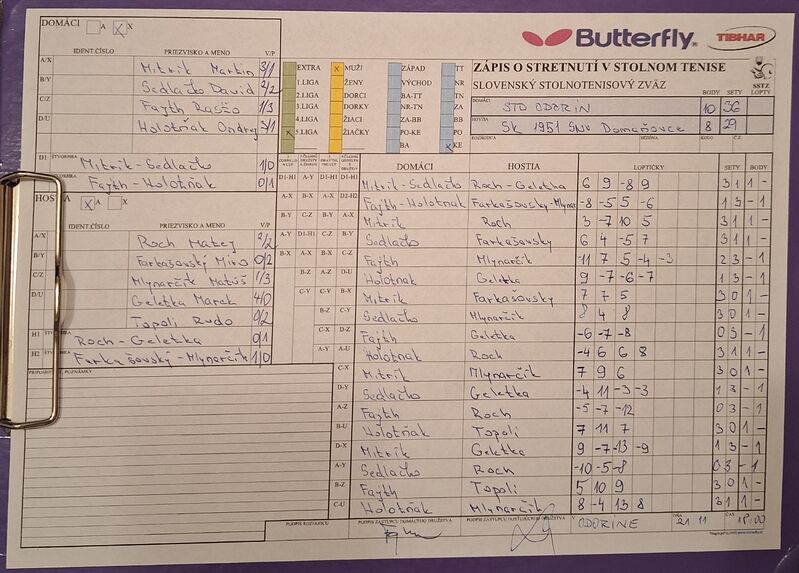 DOMÁCI A X
Butterfly TIBHAR
IDENT.ČÍSLO PRIEZVISKO A MENO V/P
A/X Mitrík Martin 3/1
B/Y Sedlačko David 2/2
C/Z Fajth Rasťo 1/3
D/U Holotňak Ondrej 3/1
D1 ŠTVORHRA Mitrík-Sedlačko 1/0
Fajth-Holotňak 0/1
EXTRA MUŽI ZÁPAD TT
1.LIGA ŽENY VÝCHOD NR
2.LIGA DORCI BA-TT TN
3.LIGA DORKY NR-TN ZA
4.LIGA ŽIACI ZA-BB BB
5.LIGA ŽIAČKY PO-KE PO
BA KE
ZÁPIS O STRETNUTÍ V STOLNOM TENISE
SLOVENSKÝ STOLNOTENISOVÝ ZVÄZ SSTZ
BODY SETY LOPTY
DOMÁCI STO ODORÍN 10 36
HOSTIA SK 1951 SNV Domaňovce 8 29
ROZHODCA KOLO SEZÓNA Č.Z.
HOSTIA A X
IDENT.ČÍSLO PRIEZVISKO A MENO V/P
A/X Roch Matej 2/2
B/Y Farkašovský Miro 0/2
C/Z Mlynarčik Matúš 1/3
D/U Geletka Marek 4/0
Topoli Rudo 0/2
H1 ŠTVORHRA Roch-Geletka 0/1
H2 Farkašovský-Mlynarčik 1/0
PRIPOMIENKY, POZNÁMKY
DOMÁCI HOSTIA LOPTIČKY SETY BODY
Mitrík-Sedlačko Roch-Geletka 6 9 -8 9 3 1 1 -
Fajth-Holotňak Farkašovsky-Mlynar -8 -5 5 -6 1 3 - 1
Mitrík Roch 3 -7 10 5 3 1 1 -
Sedlačko Farkašovsky 6 4 -5 7 3 1 1 -
Fajth Mlynarčik -11 7 5 -4 -3 2 3 - 1
Holotňak Geletka 9 -7 -6 -7 1 3 - 1
Mitrík Farkašovsky 7 7 5 3 0 1 -
Sedlačko Mlynarčik 8 4 8 3 0 1 -
Fajth Geletka -6 -7 -8 0 3 - 1
Holotňak Roch -4 6 6 8 3 1 1 -
Mitrík Mlynarčik 7 9 6 3 0 1 -
Sedlačko Geletka -4 11 -3 -3 1 3 - 1
Fajth Roch -5 -7 -12 0 3 - 1
Holotňak Topoli 7 11 7 3 0 1 -
Mitrík Geletka 9 -7 -13 -9 1 3 - 1
Sedlačko Roch -10 -5 -8 0 3 - 1
Fajth Topoli 5 10 9 3 0 1 -
Holotňak Mlynarčik 8 -4 13 8 3 1 1 -
PODPIS ROZHODCU PODPIS ZÁSTUPCU DOMÁCEHO DRUŽSTVA PODPIS ZÁSTUPCU HOSŤUJÚCEHO DRUŽSTVA V ODORINE DŇA 21.11 ČAS 18:00